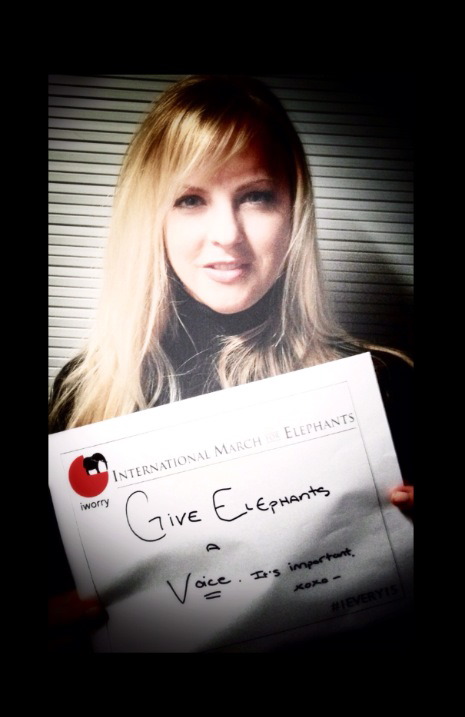 iworry
INTERNATIONAL MARCH FOR ELEPHANTS
GIVE ELEPHANTS
a
Voice. It's important.
xoxo -
#1EVERY15